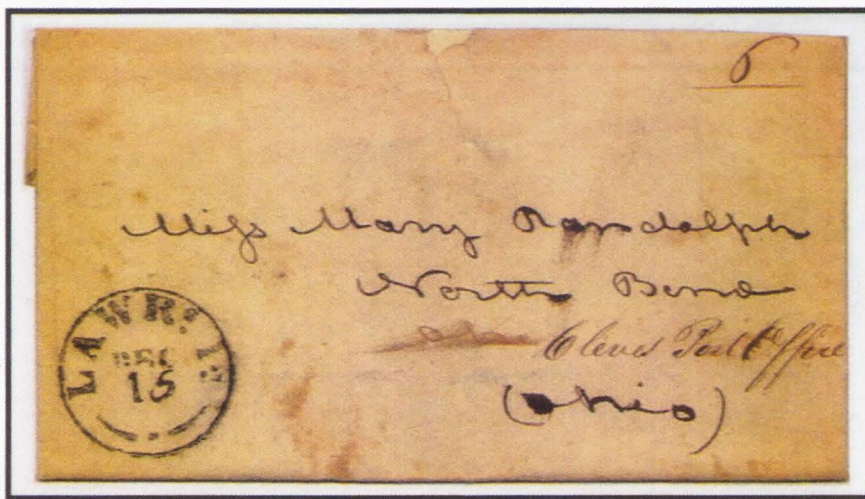 6
Miss Mary Randolph
North Bend
Cleves Post Office
(Ohio)
LAWR.
DEC
15